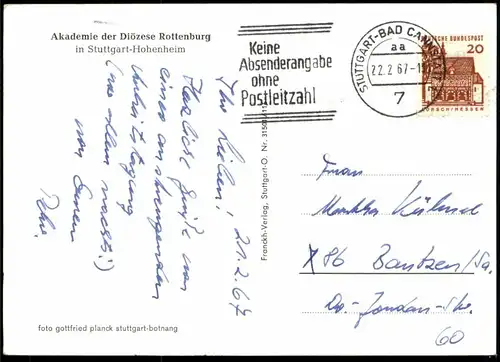 Akademie der Diözese Rottenburg
in Stuttgart-Hohenheim
Keine
Absenderangabe
ohne
Postleitzahl
STUTTGART-BAD CANNSTATT
aa
22.2.67-1
7
DEUTSCHE BUNDESPOST
20
LORSCH/HESSEN
Ihr Lieben! 21.2.67
Herzliche Grüße von
einer anstrengenden
Arbeitstagung
(vor allem nachts!)
von Eurem
Franckh-Verlag, Stuttgart-O. Nr.
Familie
X 86 Bautzen/Sa.
Dr.-Jordan-Str.
60
foto gottfried planck stuttgart-botnang